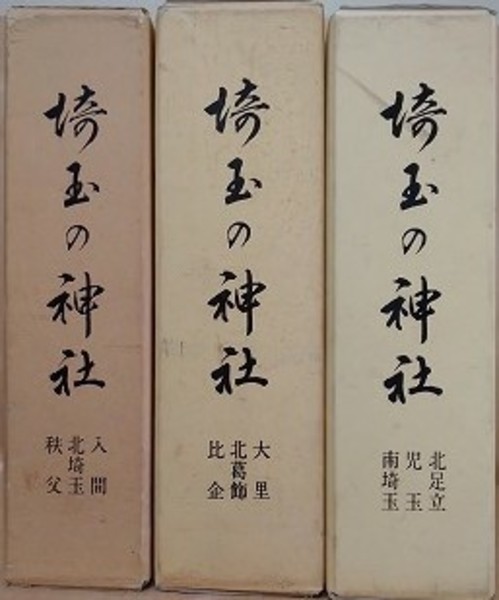 埼玉の神社
入間
北埼玉
秩父
埼玉の神社
大里
北葛飾
比企
埼玉の神社
北足立
児玉
南埼玉